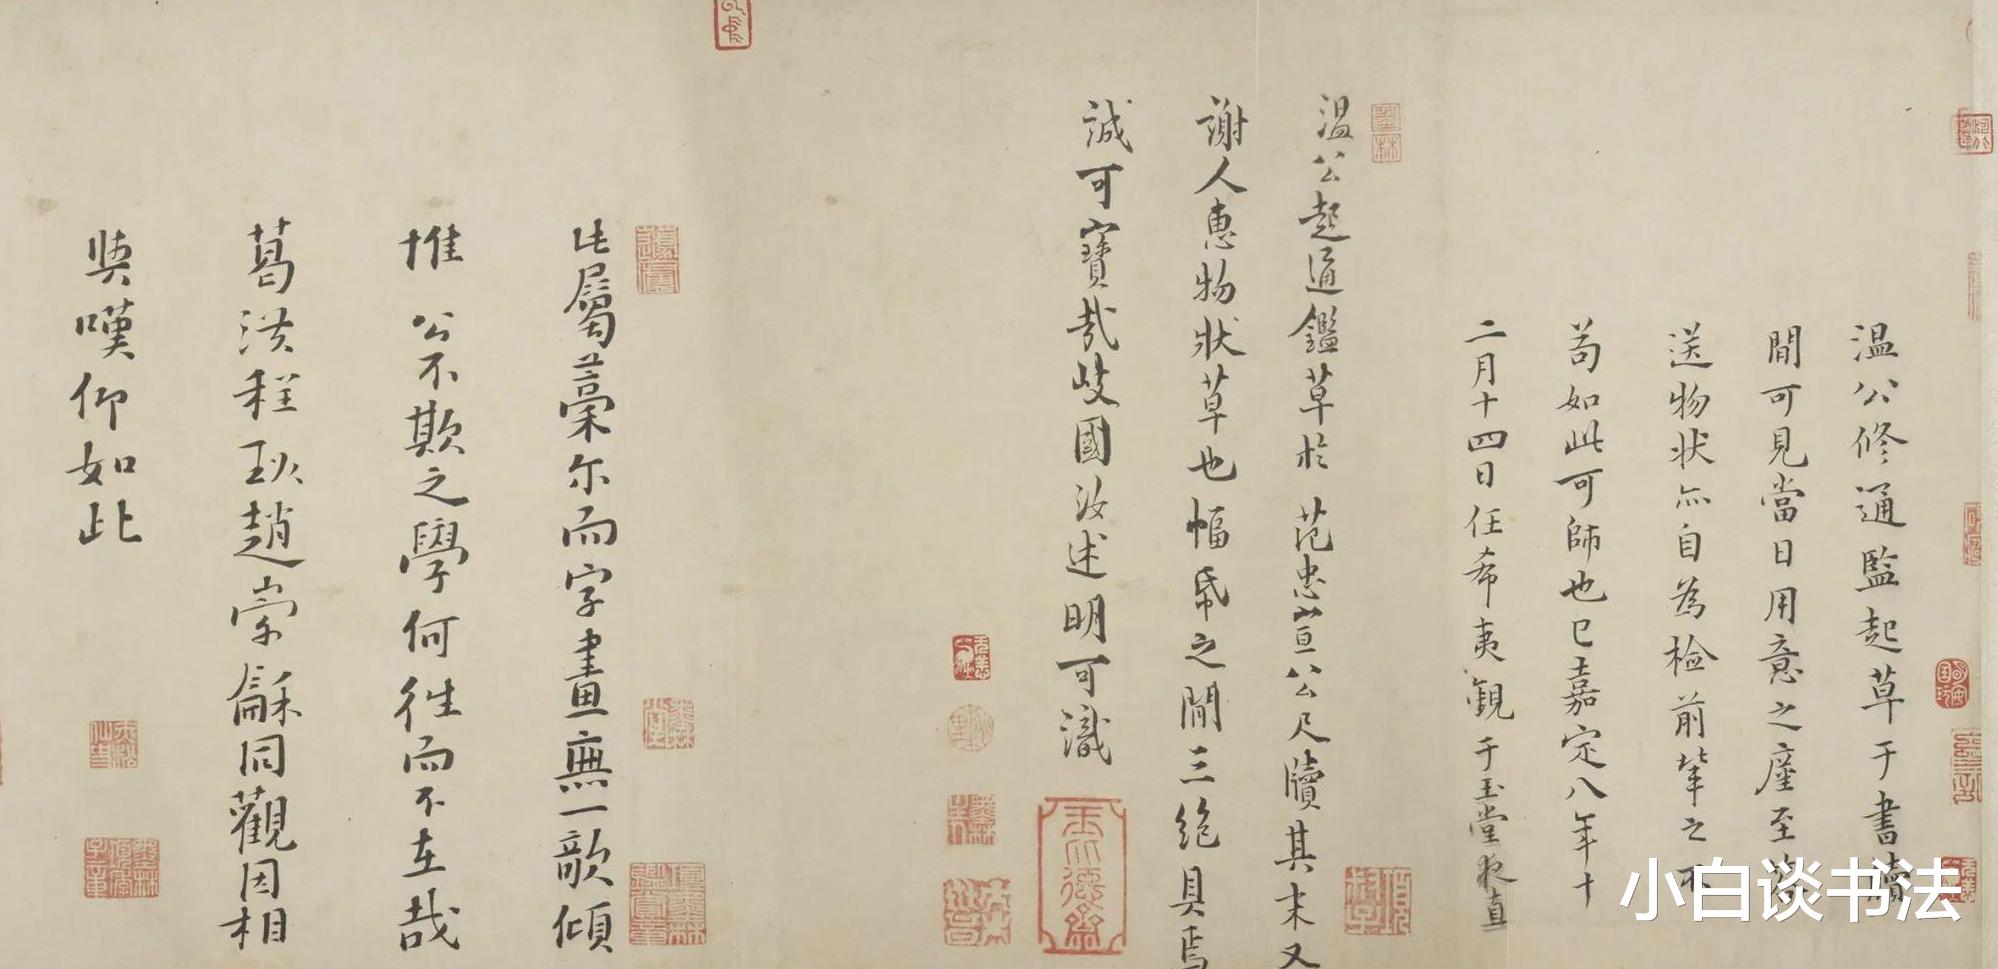 温公修通監起草于書牘
間可見當日用意之產至若
送物状亦自為檢前軰之不
苟如此可師也已嘉定八年十
二月十四日任希夷觀于玉堂夜直
温公起通鑑草於范忠宣公尺牘其末又
謝人惠物狀草也幅帋之間三絶具焉
誠可寶哉歧國汝述明可識
此屬藁尔而字畫無一欹傾
惟公不欺之學何徃而不在哉
葛洪程珌趙崇龢同觀因相
與嘆仰如此
小白谈书法